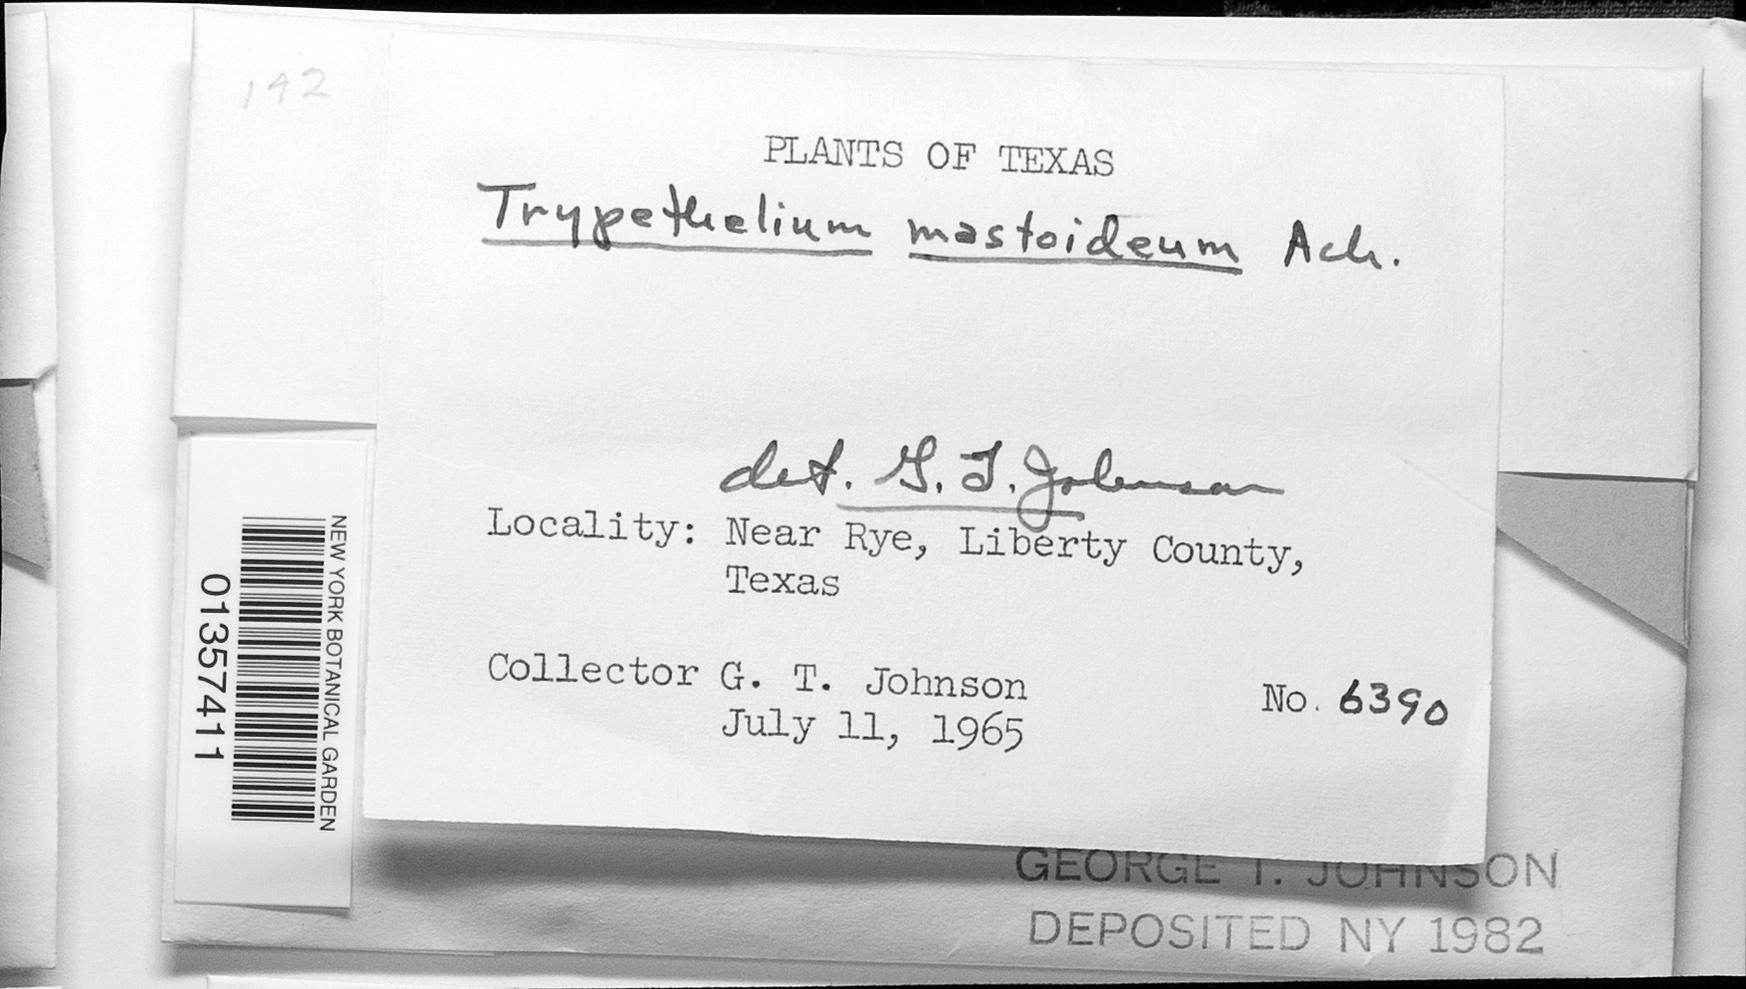 142
PLANTS OF TEXAS
Trypethelium mastoideum Ach.
det. G. T. Johnson
Locality: Near Rye, Liberty County,
Texas
Collector G. T. Johnson
July 11, 1965
No. 6390
NEW YORK BOTANICAL GARDEN
01357411
GEORGE T. JOHNSON
DEPOSITED NY 1982